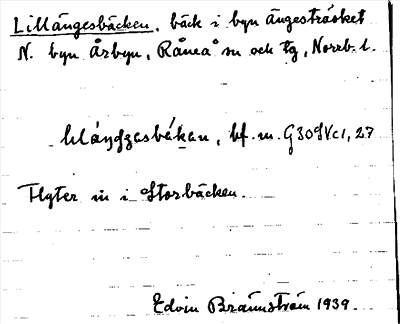 Lillängesbäcken, bäck i byn Ängesträsket
N. byn Årbyn, Råneå sn och tg, Norrb. l.
bf. m. G30SVc1, 27
Flyter in i Storbäcken.
Edvin Brännström 1939.